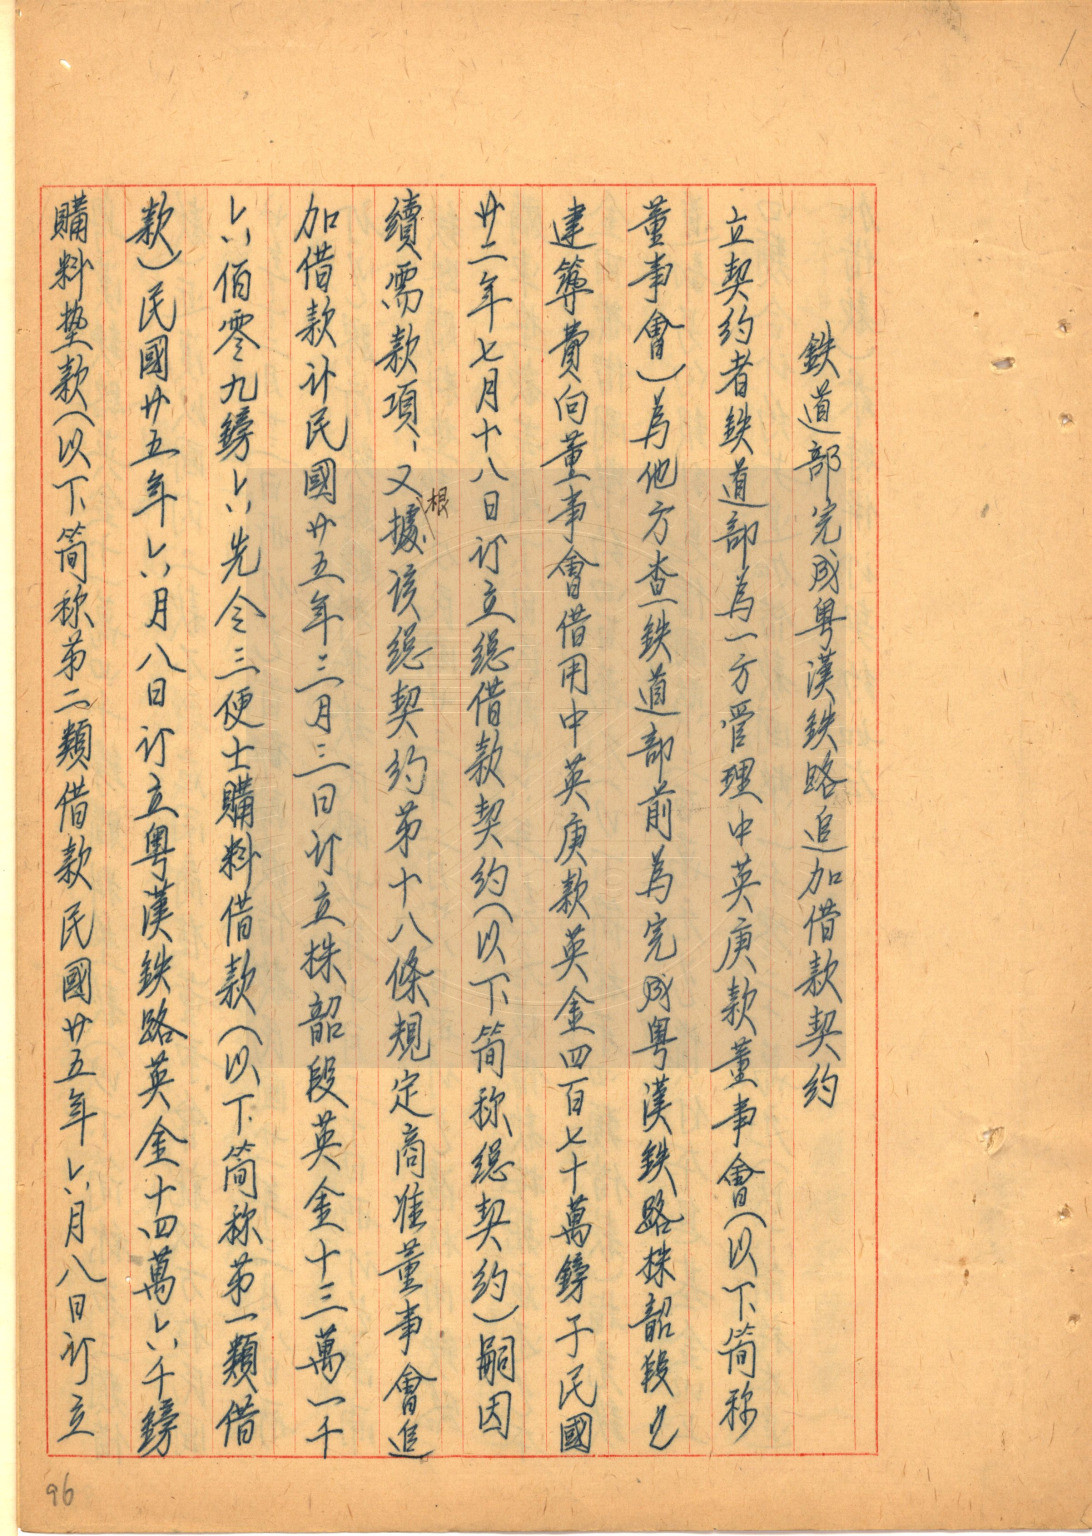 鉄道部完成粤漢鉄路追加借款契約
立契約者鉄道部為一方管理中英庚款董事會(以下简称
董事會)為他方查鉄道部前為完成粤漢鉄路株韶段之
建築費向董事會借用中英庚款英金四百七十萬鎊于民國
廿二年七月十八日订立總借款契約(以下简称總契約)嗣因
續需款項、又根據该總契約第十八條規定商准董事會追
加借款计民國廿五年三月三日订立株韶段英金十三萬一千
六佰零九鎊六先令三便士購料借款(以下简称第一類借
款)民國廿五年六月八日订立粤漢鉄路英金十四萬六千鎊
購料墊款(以下简称第二類借款民國廿五年六月八日订立
96